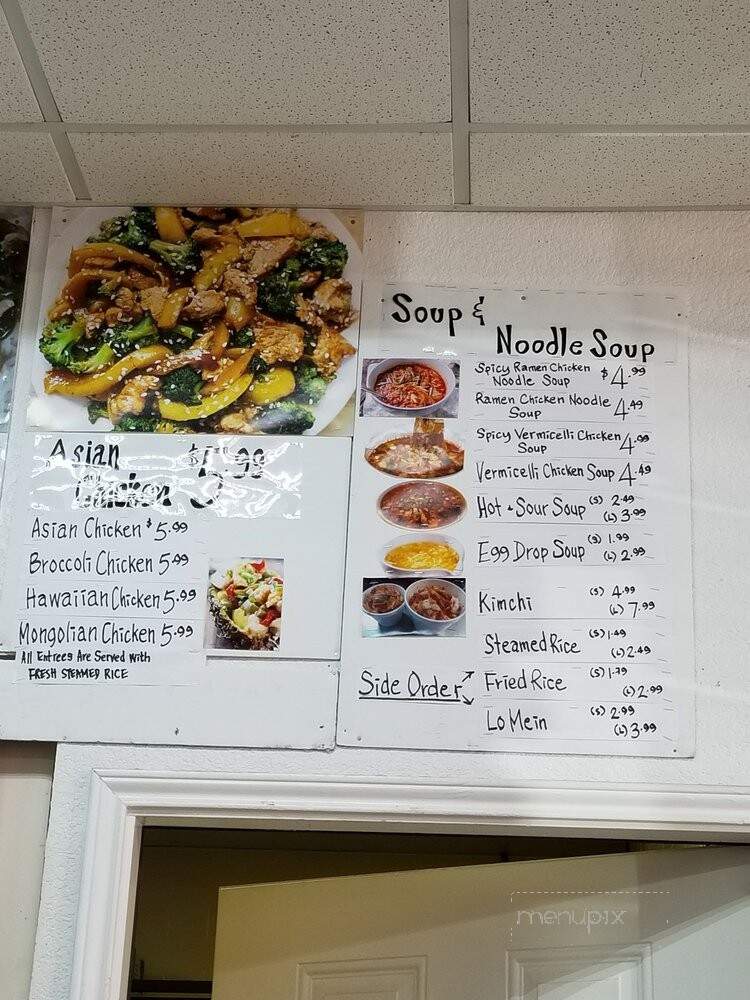 Asian $5.99
Chicken
Asian Chicken $5.99
Broccoli Chicken 5.99
Hawaiian Chicken 5.99
Mongolian Chicken 5.99
All Entrees Are Served With
FRESH STEAMED RICE
Soup &
Noodle Soup
Spicy Ramen Chicken
Noodle Soup $4.99
Ramen Chicken Noodle
Soup 4.49
Spicy Vermicelli Chicken
Soup 4.99
Vermicelli Chicken Soup 4.49
Hot & Sour Soup (S) 2.49
(L) 3.99
Egg Drop Soup (S) 1.99
(L) 2.99
Kimchi (S) 4.99
(L) 7.99
Steamed Rice (S) 1.49
(L) 2.49
Side Order
Fried Rice (S) 1.79
(L) 2.99
Lo Mein (S) 2.99
(L) 3.99
menupix